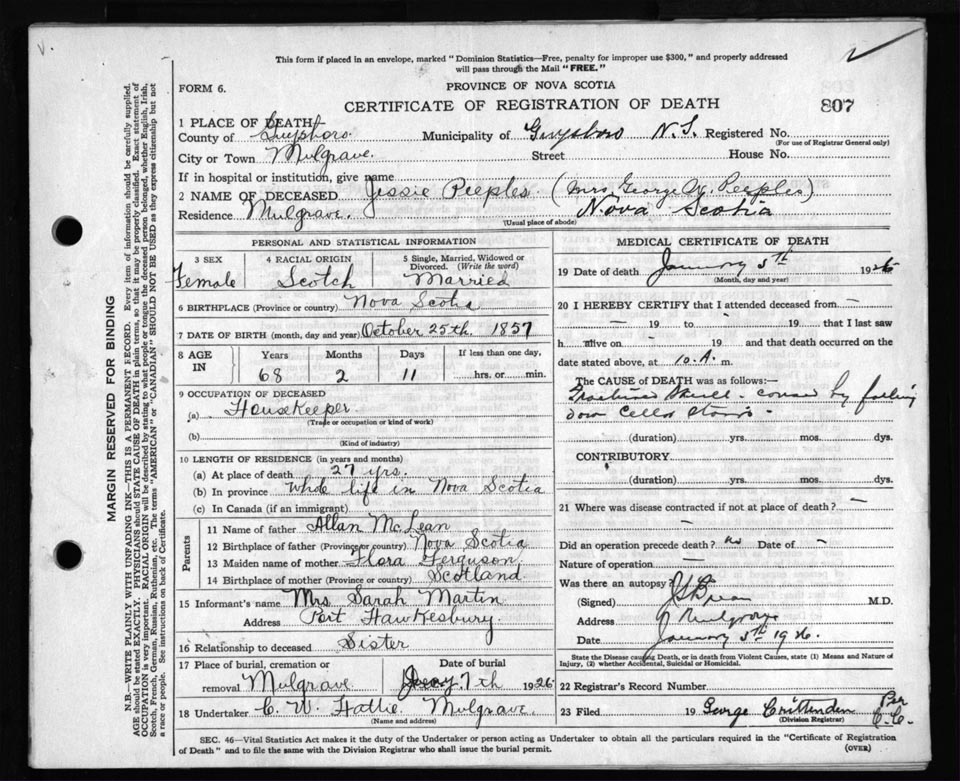 This form if placed in an envelope, marked "Dominion Statistics—Free, penalty for improper use $300," and properly addressed
will pass through the Mail "FREE."
FORM 6.
PROVINCE OF NOVA SCOTIA
CERTIFICATE OF REGISTRATION OF DEATH
807
1 PLACE OF DEATH
County of Guysboro. Municipality of Guysboro N.S. Registered No.
(For use of Registrar General only)
City or Town Mulgrave. Street House No.
If in hospital or institution, give name
2 NAME OF DECEASED Jessie Peeples (Mrs George W. Peeples)
Residence Mulgrave. Nova Scotia
(Usual place of abode)
PERSONAL AND STATISTICAL INFORMATION
3 SEX 4 RACIAL ORIGIN 5 Single, Married, Widowed or Divorced. (Write the word)
Female Scotch Married
6 BIRTHPLACE (Province or country) Nova Scotia
7 DATE OF BIRTH (month, day and year) October 25th. 1857
8 AGE IN Years Months Days If less than one day,
68 2 11 hrs. or min.
9 OCCUPATION OF DECEASED
(a) Housekeeper
(Trade or occupation or kind of work)
(b)
(Kind of industry)
10 LENGTH OF RESIDENCE (in years and months)
(a) At place of death 27 yrs.
(b) In province whole life in Nova Scotia
(c) In Canada (if an immigrant)
Parents
11 Name of father Allan McLean
12 Birthplace of father (Province or country) Nova Scotia
13 Maiden name of mother Flora Ferguson
14 Birthplace of mother (Province or country) Scotland
15 Informant's name Mrs Sarah Martin
Address Port Hawkesbury.
16 Relationship to deceased Sister
17 Place of burial, cremation or Date of burial
removal Mulgrave 7th 1926
18 Undertaker C. W. Hattie Mulgrave.
(Name and address)
MEDICAL CERTIFICATE OF DEATH
19 Date of death January 5th 1926
(Month, day and year)
20 I HEREBY CERTIFY that I attended deceased from —
— 19 to 19 that I last saw
h alive on — 19 and that death occurred on the
date stated above, at 10.A. m.
The CAUSE OF DEATH was as follows:—
Fractured Skull - caused by falling
down Cellar Stairs -
(duration) yrs. mos. dys.
CONTRIBUTORY
(duration) yrs. mos. dys.
21 Where was disease contracted if not at place of death? —
—
Did an operation precede death? no Date of —
Nature of operation —
Was there an autopsy?
(Signed) M.D.
Address Mulgrave
Date January 5th 1926.
State the Disease causing Death, or in death from Violent Causes, state (1) Means and Nature of
Injury, (2) whether Accidental, Suicidal or Homicidal.
22 Registrar's Record Number
23 Filed 19 George Crittenden Per C.C.
(Division Registrar)
SEC. 46—Vital Statistics Act makes it the duty of the Undertaker or person acting as Undertaker to obtain all the particulars required in the "Certificate of Registration
of Death" and to file the same with the Division Registrar who shall issue the burial permit.
(OVER)
MARGIN RESERVED FOR BINDING
N.B.—WRITE PLAINLY WITH UNFADING INK—THIS IS A PERMANENT RECORD. Every item of information should be carefully supplied.
AGE should be stated EXACTLY. PHYSICIANS should STATE CAUSE OF DEATH in plain terms, so that it may be properly classified. Exact statement of
OCCUPATION is very important. RACIAL ORIGIN will be described by stating to what people or tongue the deceased person belonged, whether English, Irish,
Scotch, French, German, Russian, Ruthenian, etc. The terms "AMERICAN" or "CANADIAN" SHOULD NOT BE USED as they express citizenship but not
a race or people. See instructions on back of Certificate.